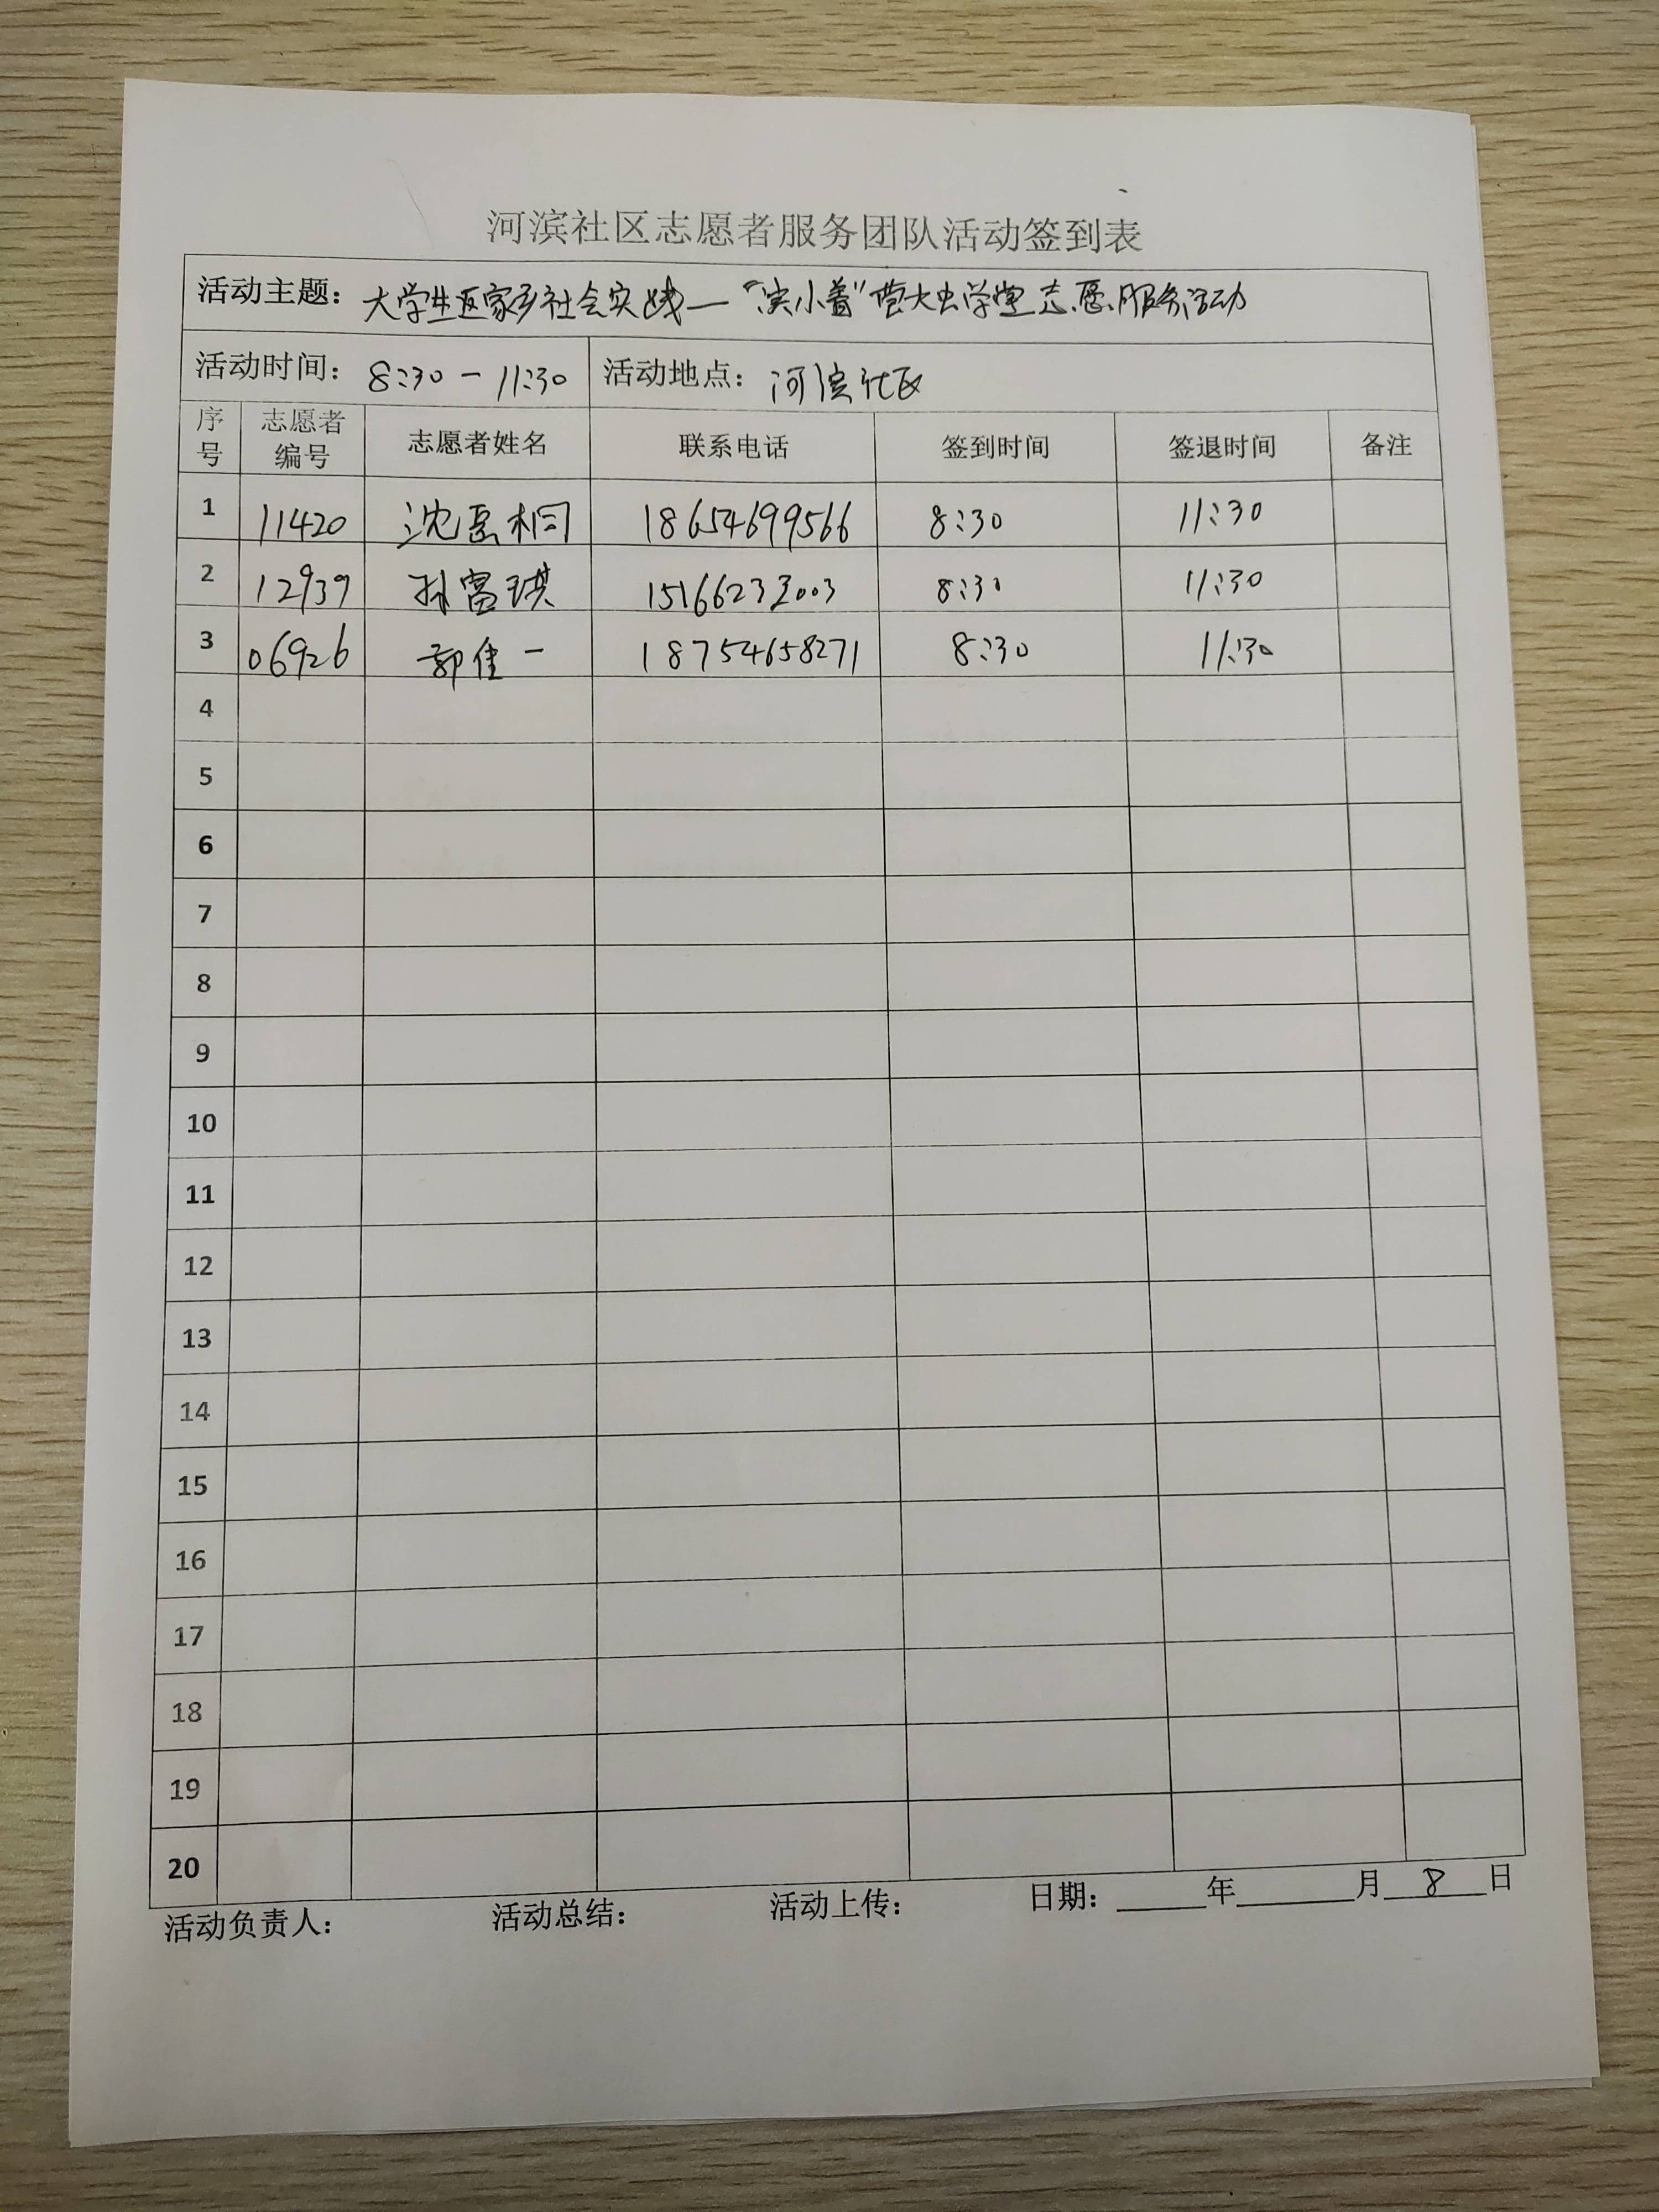 河滨社区志愿者服务团队活动签到表
活动主题：大学生返家乡社会实践—“滨小着”萤大虫学堂志愿服务活动
活动时间：8:30-11:30 活动地点：河滨社区
序号 志愿者编号 志愿者姓名 联系电话 签到时间 签退时间 备注
1 11420 沈 桐 18654699566 8:30 11:30
2 12939 孙富琪 1516623 003 8:30 11:30
3 06926 郭佳一 18754658271 8:30 11:30
4
5
6
7
8
9
10
11
12
13
14
15
16
17
18
19
20
活动负责人： 活动总结： 活动上传： 日期：____年____月 8 日